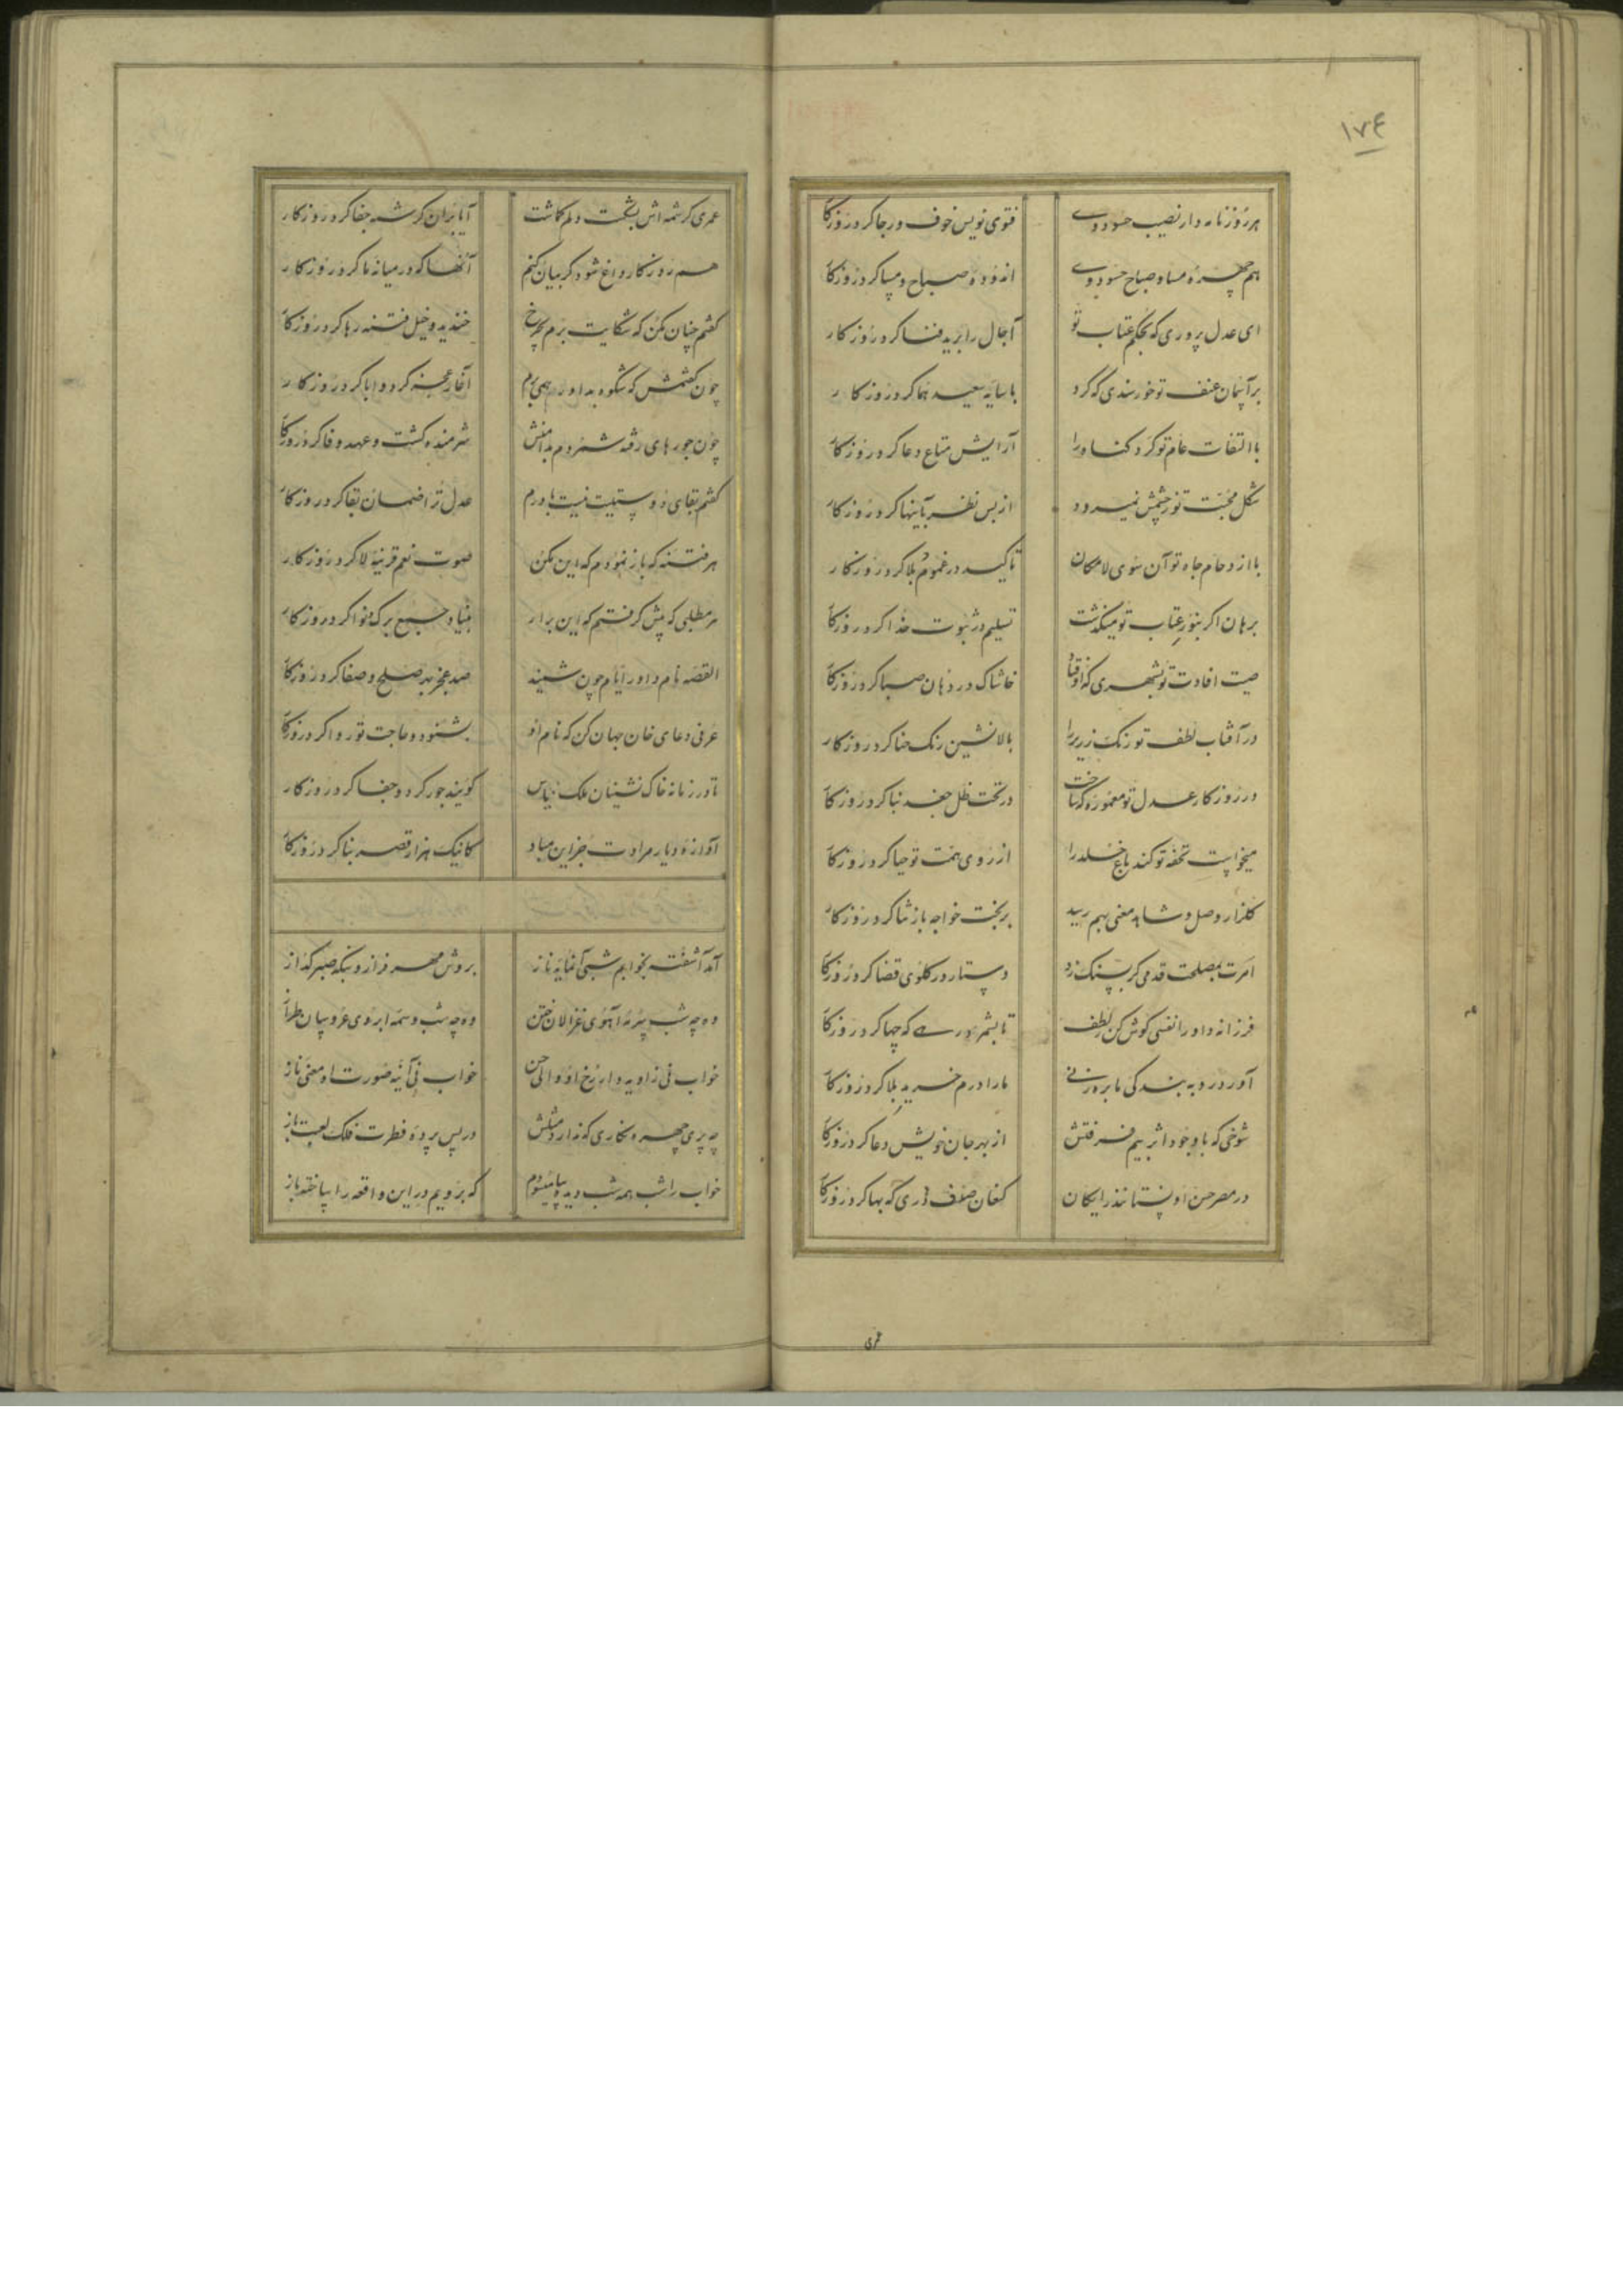 ١٧٤
هر روز نامه دار نصیب حسود وی فتوی نویس خوف و رجا کرد روزکار
هم چهره مسا و صباح حسود وی اندوده صباح و مسا کرد روزکار
ای عدل پروری که بحکم عتاب تو آجال را برید فنا کرد روزکار
بر آسمان عنف تو خورسندی که کرد با سایه سعید هما کرد روزکار
با التفات عام تو کرد کناه را آرایش متاع دعا کرد روزکار
شکل محبت تو ز چشمش نمیرود از بس نظر بآینها کرد روزکار
با ازدحام جاه تو آن سوی لامکان تاکید در عموم بلا کرد روزکار
برهان اکر بنور عتاب تو میکذشت تسلیم در ثبوت خدا کرد روزکار
صیت افادت تو بشهری که اوفتاد خاشاک در دهان صبا کرد روزکار
در آفتاب لطف تو رنک زریر را بالانشین رنک حنا کرد روزکار
در روزکار عدل تو معموره که ساخت در تحت ظل جغد بنا کرد روزکار
میخواست تحفه تو کند باغ خلد را از روی همت تو حیا کرد روزکار
کلزار وصل و شاهد معنی بهم رسید بر بخت خواجه باز ثنا کرد روزکار
امرت بمصلحت قدمی کر پسنک زد دستار در کلوی قضا کرد روزکار
فرزانه داورا نفسی کوش کن ز لطف تا بشمرد رهی که چها کرد روزکار
آورد رو به بندکی ما بره زنی ما را درم خرید بلا کرد روزکار
شوخی که با وجود اثر بیم فرقتش از بهر جان خویش دعا کرد روزکار
در مصر حسن او نستانند رایکان کنعان صدف دری که بها کرد روزکار
عمری
عمری کرشمه اش بشکست دلم کماشت آیا بر آن کرشمه جفا کرد روزکار
هم روزکار داغ شود کر بیان کنم آنها که در میانه ما کرد روزکار
کفتم چنان مکن که شکایت برم بچرخ خندید و خیل فتنه رها کرد روزکار
چون کفتمش که شکوه بداور همی برم آغاز عجز کرد و ابا کرد روزکار
چون جورهای رفته شمردم بدامنش شرمنده کشت و عهد وفا کرد روزکار
کفتم بقای دوستیت نیست باورم عدل ترا ضمان بقا کرد روزکار
هر فتنه که باز نمودم که این مکن صوت نعم قرینه لا کرد روزکار
هر مطلبی که پیش کرفتم که این برار بنیاد جمع برک و نوا کرد روزکار
القصه نام داور ایام چون شنید صد عجز بهر صلح و صفا کرد روزکار
عرفی دعای خان جهان کن که نام او بشنود و حاجت تو روا کرد روزکار
تا در زمانه خاک نشینان ملک یاس کویند جور کرد و جفا کرد روزکار
آوازه دیار مرادت جز این مباد کانیک هزار قصر بنا کرد روزکار
آمد آشفته بخوابم شبی آن مایه ناز بروش مهر فزا و بنکه صبر کداز
وه چه شب سرمه آهوی غزالان ختن وه چه شب وسمه ابروی عروسان طراز
خواب نی زاویه دار رخ او والی حسن خواب نی آینه صورت او معنی ناز
چه پری چهره نکاری که ندارد مثلش در پس پرده فطرت فلک لعبت باز
خواب را شب همه شب دیده بپا میسودم که برویم در این واقعه را ساخته باز